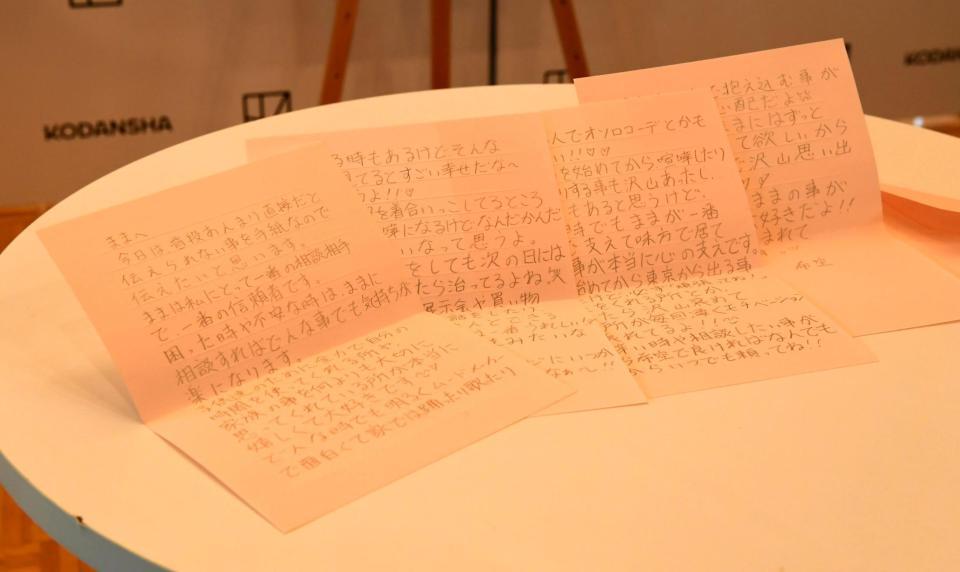 KODANSHA
KODANSHA
ままへ
今日は普段あんまり直接だと
伝えられない事を手紙なので
伝えたいと思います。
ままは私にとって一番の相談相手
で一番の信頼者です。
困った時や不安な時はままに
相談すればどんな事でも気持ちが
楽になります。
自分の
時間を使ってくれ
家族の事を何より大切に
思ってくれている所が本当に
嬉しくて大好きです
どんな時でも明るく
で面白くて家では踊ったり歌ったり
る時もあるけどそんな
見てるとすごい幸せだな〜
よ!!♡
を着合いっこしてるところ
嘩になるけどなんだかんだ
いなって思うよ。
をしても次の日には
たら治ってるよね笑
展示会や買い物
みたいな
にいつか
なぁ〜!!
人でオソロコーデとかも
い!!♡♡
を始めてから喧嘩したり
する事も沢山あったし
もあると思うけど、
時でもままが一番
支えて味方で居て
事が本当に心の支えです。
始めてから東京から出る事
たら
が毎回凄くモチベーション
れてるよ!!♡
い時や相談したい事が
希空で良ければなんでも
らいつでも頼ってね!!
抱え込む事が
配だよ
まにはずっと
て欲しいから
沢山思い出
♡
ままの事が
好きだよ!!
まれて
希空